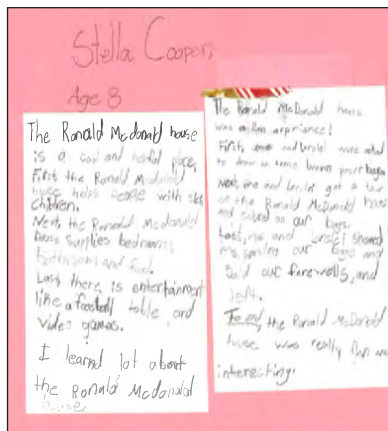 Stella Cooper
Age 8
The Ronald Mcdonald house
is a cool and place,
First, the Ronald Mcdonald
house helps people with sick
children.
Next, the Ronald Mcdonald
house supplies bedrooms,
bathrooms and food.
Last, there is entertainment
like a foosball table and
video games.
I learned lot about
the Ronald Mcdonald
house.
The Ronald McDonald house
was a fun
First, me and were
to draw on some brown paper bags
Next, me and got a tour
of the Ronald McDonald house
and on our bags.
Last, me and showed
our bags and
said our farewells, and
left.
the Ronald McDonald
house was really fun and
interesting.